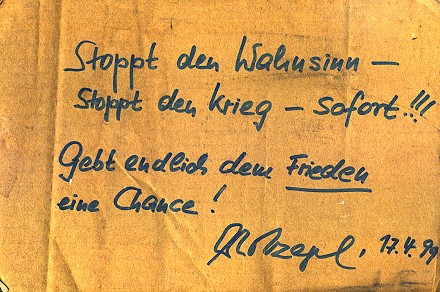 Stoppt den Wahnsinn –
Stoppt den Krieg – sofort!!!
Gebt endlich dem Frieden
eine Chance!
17.4.99